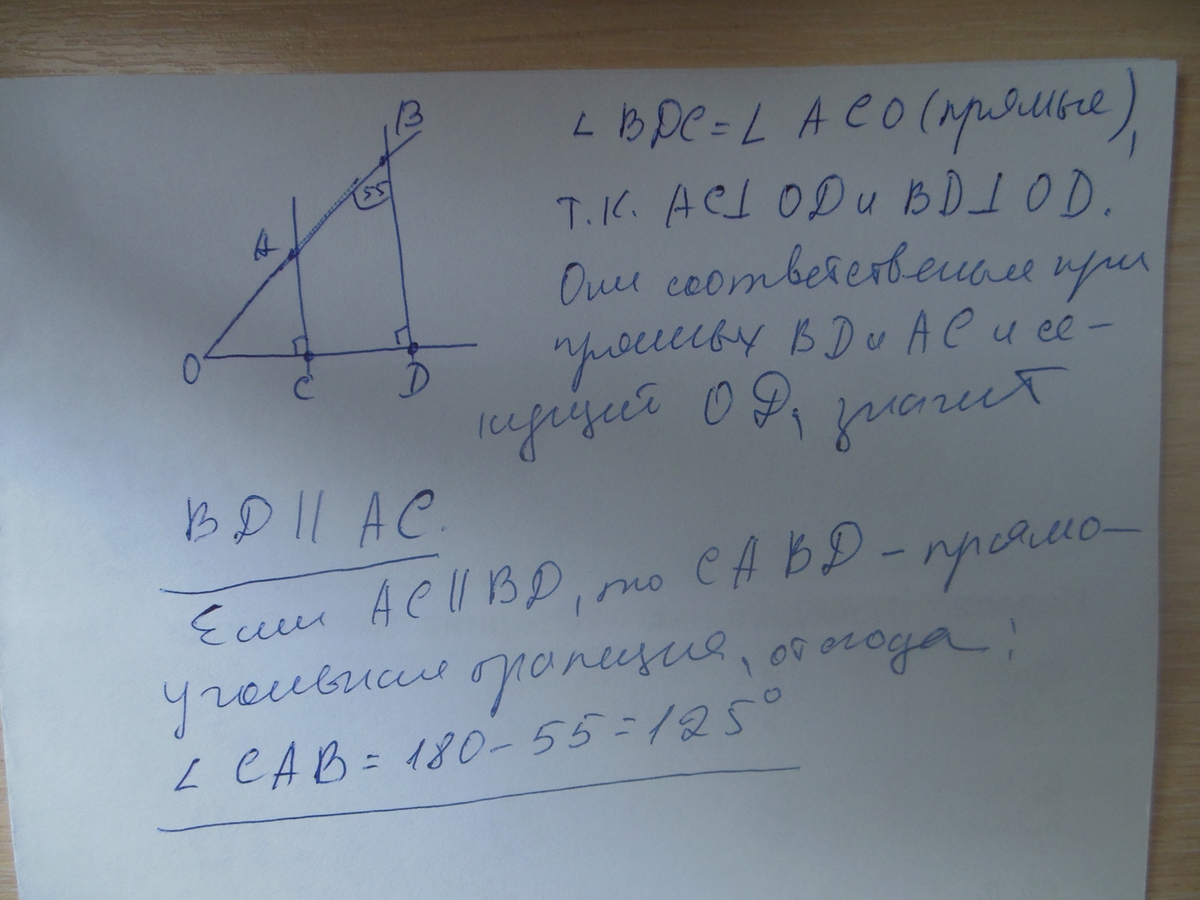 B
55
A
O
C
D
∠ BDC = ∠ ACO (прямые),
т.к. AC⊥ OD и BD⊥ OD.
Они соответственые при
прямых BD и AC и се-
кущий OD, значит
BD || AC.
Если AC || BD, то CABD - прямо-
угольная трапеция, отсюда:
∠ CAB = 180 - 55 = 125°